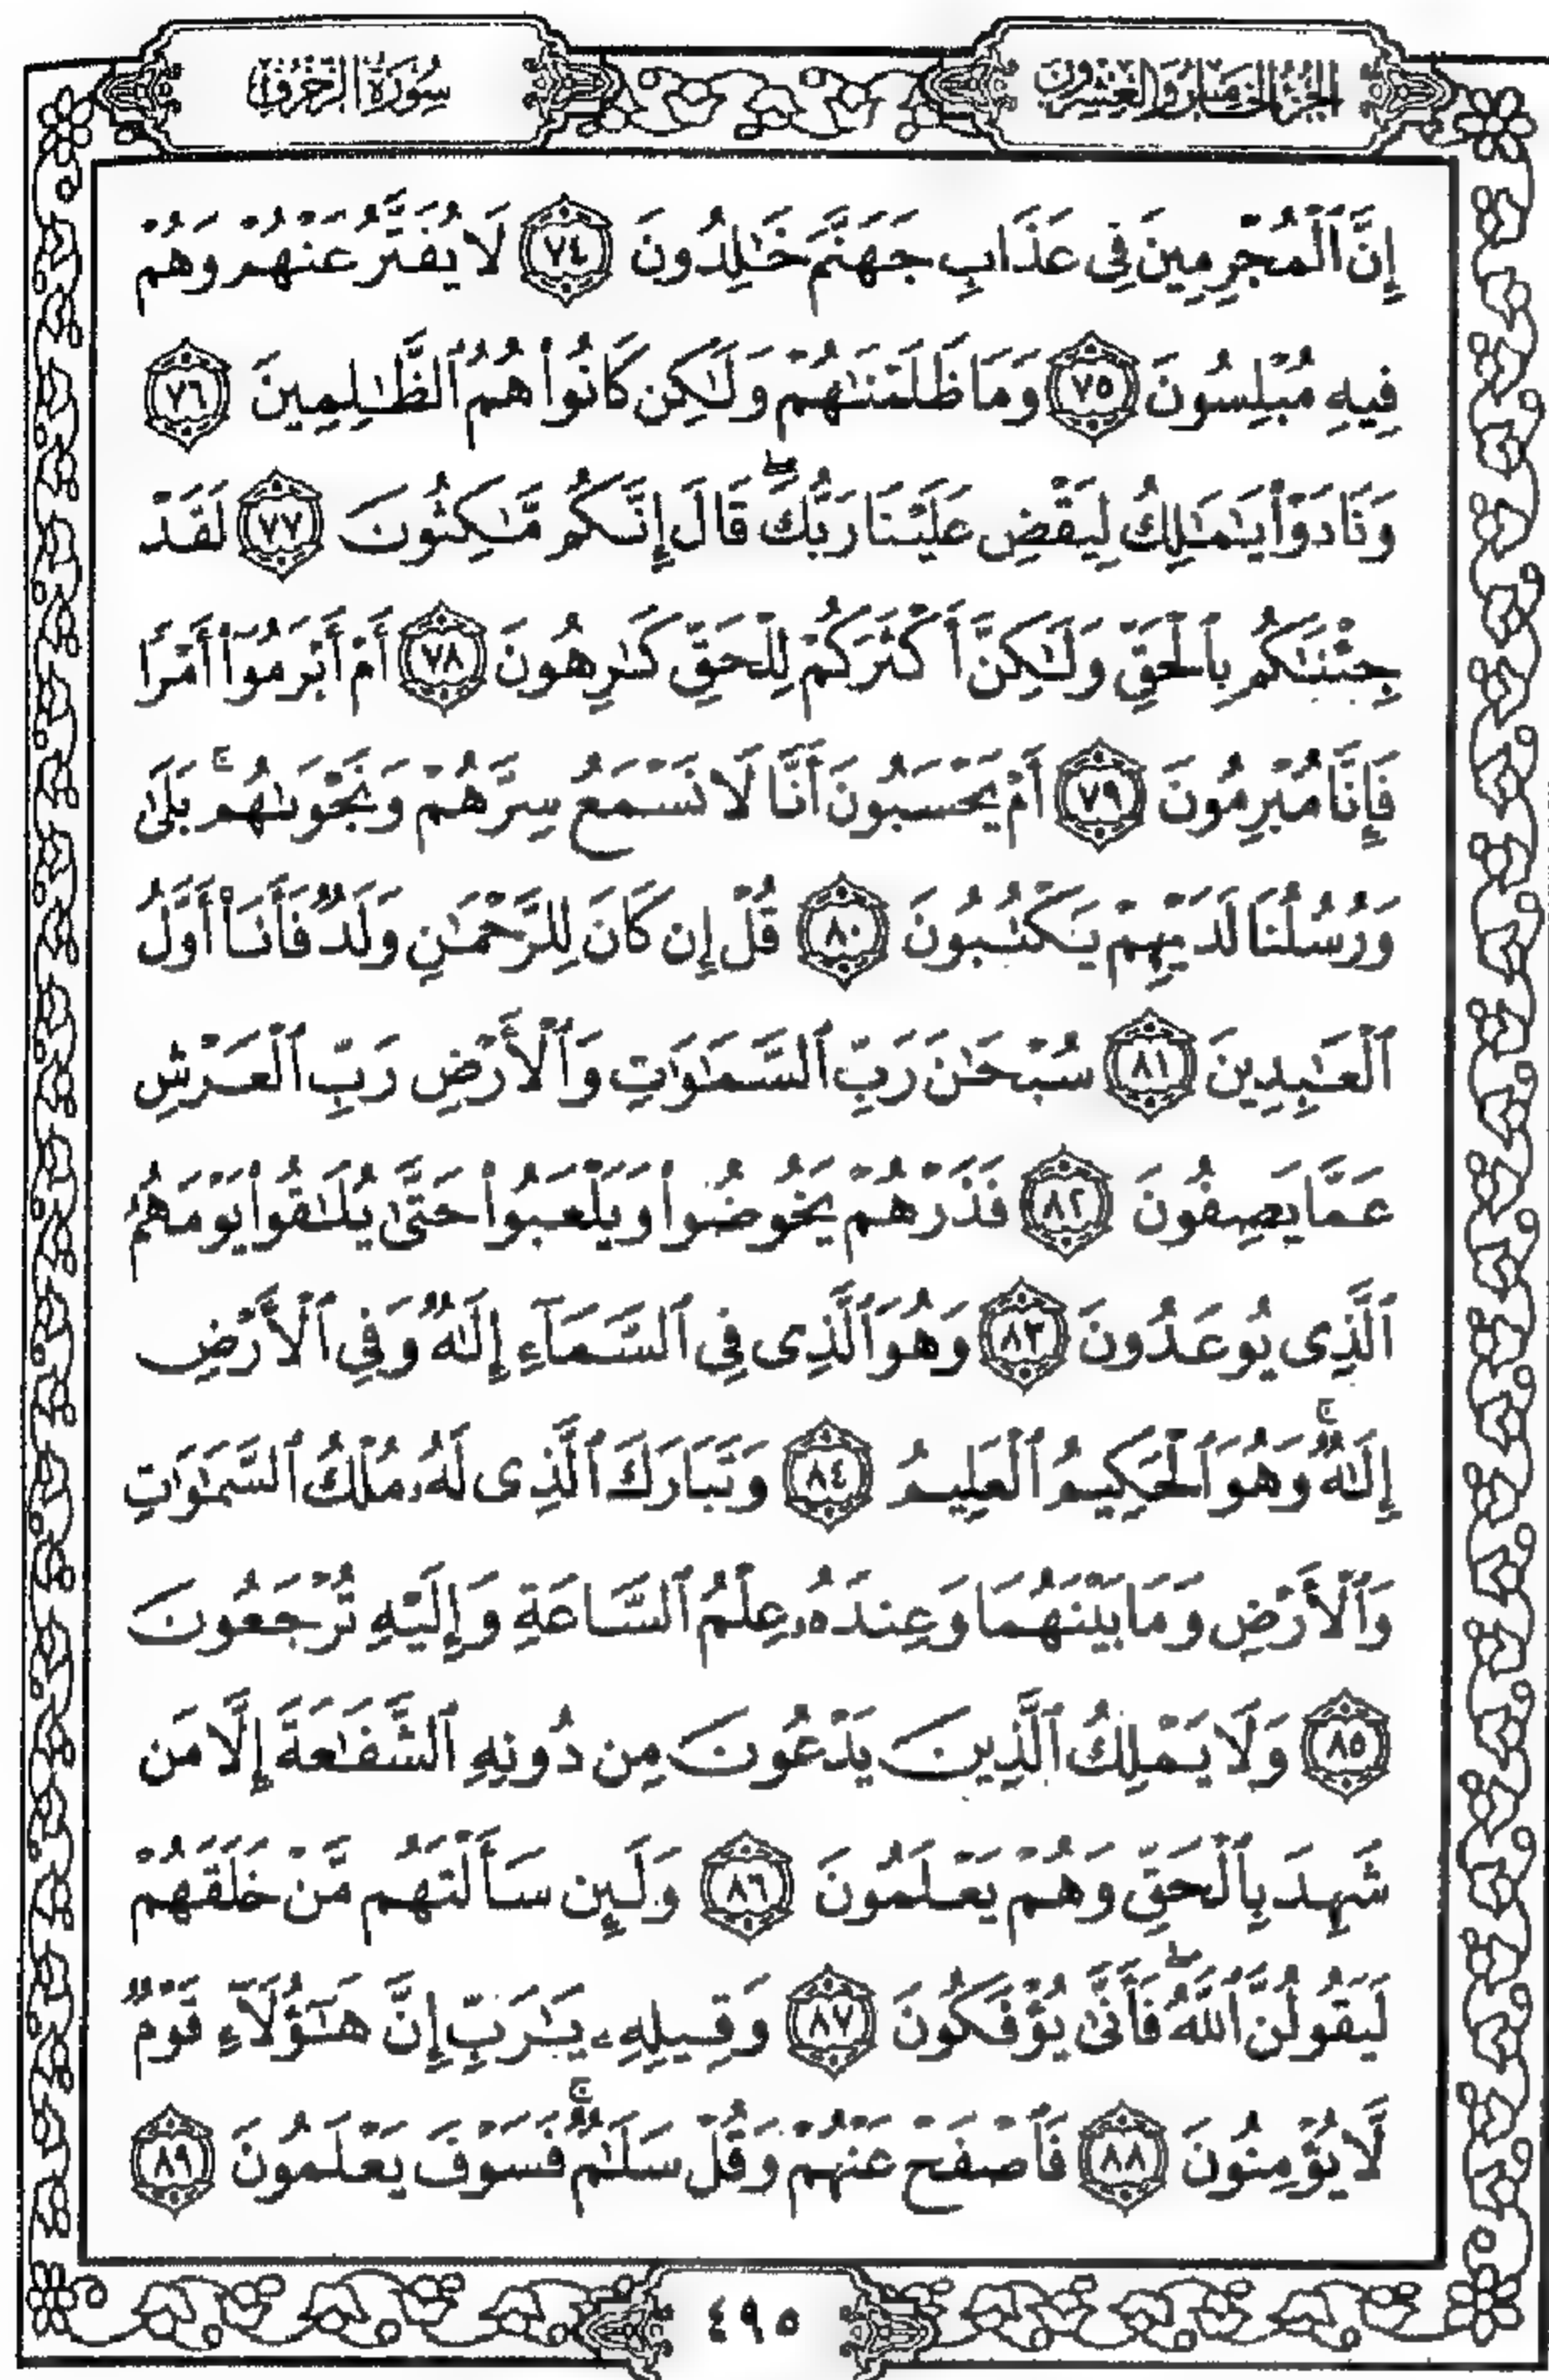 الجزء الخامس والعشرون
سورة الزخرف
إِنَّ ٱلْمُجْرِمِينَ فِى عَذَابِ جَهَنَّمَ خَـٰلِدُونَ ٧٤ لَا يُفَتَّرُ عَنْهُمْ وَهُمْ
فِيهِ مُبْلِسُونَ ٧٥ وَمَا ظَلَمْنَـٰهُمْ وَلَـٰكِن كَانُوا۟ هُمُ ٱلظَّـٰلِمِينَ ٧٦
وَنَادَوْا۟ يَـٰمَـٰلِكُ لِيَقْضِ عَلَيْنَا رَبُّكَ ۖ قَالَ إِنَّكُم مَّـٰكِثُونَ ٧٧ لَقَدْ
جِئْنَـٰكُم بِٱلْحَقِّ وَلَـٰكِنَّ أَكْثَرَكُمْ لِلْحَقِّ كَـٰرِهُونَ ٧٨ أَمْ أَبْرَمُوٓا۟ أَمْرًا
فَإِنَّا مُبْرِمُونَ ٧٩ أَمْ يَحْسَبُونَ أَنَّا لَا نَسْمَعُ سِرَّهُمْ وَنَجْوَىٰهُم ۚ بَلَىٰ
وَرُسُلُنَا لَدَيْهِمْ يَكْتُبُونَ ٨٠ قُلْ إِن كَانَ لِلرَّحْمَـٰنِ وَلَدٌ فَأَنَا۠ أَوَّلُ
ٱلْعَـٰبِدِينَ ٨١ سُبْحَـٰنَ رَبِّ ٱلسَّمَـٰوَٰتِ وَٱلْأَرْضِ رَبِّ ٱلْعَرْشِ
عَمَّا يَصِفُونَ ٨٢ فَذَرْهُمْ يَخُوضُوا۟ وَيَلْعَبُوا۟ حَتَّىٰ يُلَـٰقُوا۟ يَوْمَهُمُ
ٱلَّذِى يُوعَدُونَ ٨٣ وَهُوَ ٱلَّذِى فِى ٱلسَّمَآءِ إِلَـٰهٌ وَفِى ٱلْأَرْضِ
إِلَـٰهٌ ۚ وَهُوَ ٱلْحَكِيمُ ٱلْعَلِيمُ ٨٤ وَتَبَارَكَ ٱلَّذِى لَهُۥ مُلْكُ ٱلسَّمَـٰوَٰتِ
وَٱلْأَرْضِ وَمَا بَيْنَهُمَا وَعِندَهُۥ عِلْمُ ٱلسَّاعَةِ وَإِلَيْهِ تُرْجَعُونَ
٨٥ وَلَا يَمْلِكُ ٱلَّذِينَ يَدْعُونَ مِن دُونِهِ ٱلشَّفَـٰعَةَ إِلَّا مَن
شَهِدَ بِٱلْحَقِّ وَهُمْ يَعْلَمُونَ ٨٦ وَلَئِن سَأَلْتَهُم مَّنْ خَلَقَهُمْ
لَيَقُولُنَّ ٱللَّهُ ۖ فَأَنَّىٰ يُؤْفَكُونَ ٨٧ وَقِيلِهِۦ يَـٰرَبِّ إِنَّ هَـٰٓؤُلَآءِ قَوْمٌ
لَّا يُؤْمِنُونَ ٨٨ فَٱصْفَحْ عَنْهُمْ وَقُلْ سَلَـٰمٌ ۚ فَسَوْفَ يَعْلَمُونَ ٨٩
٤٩٥